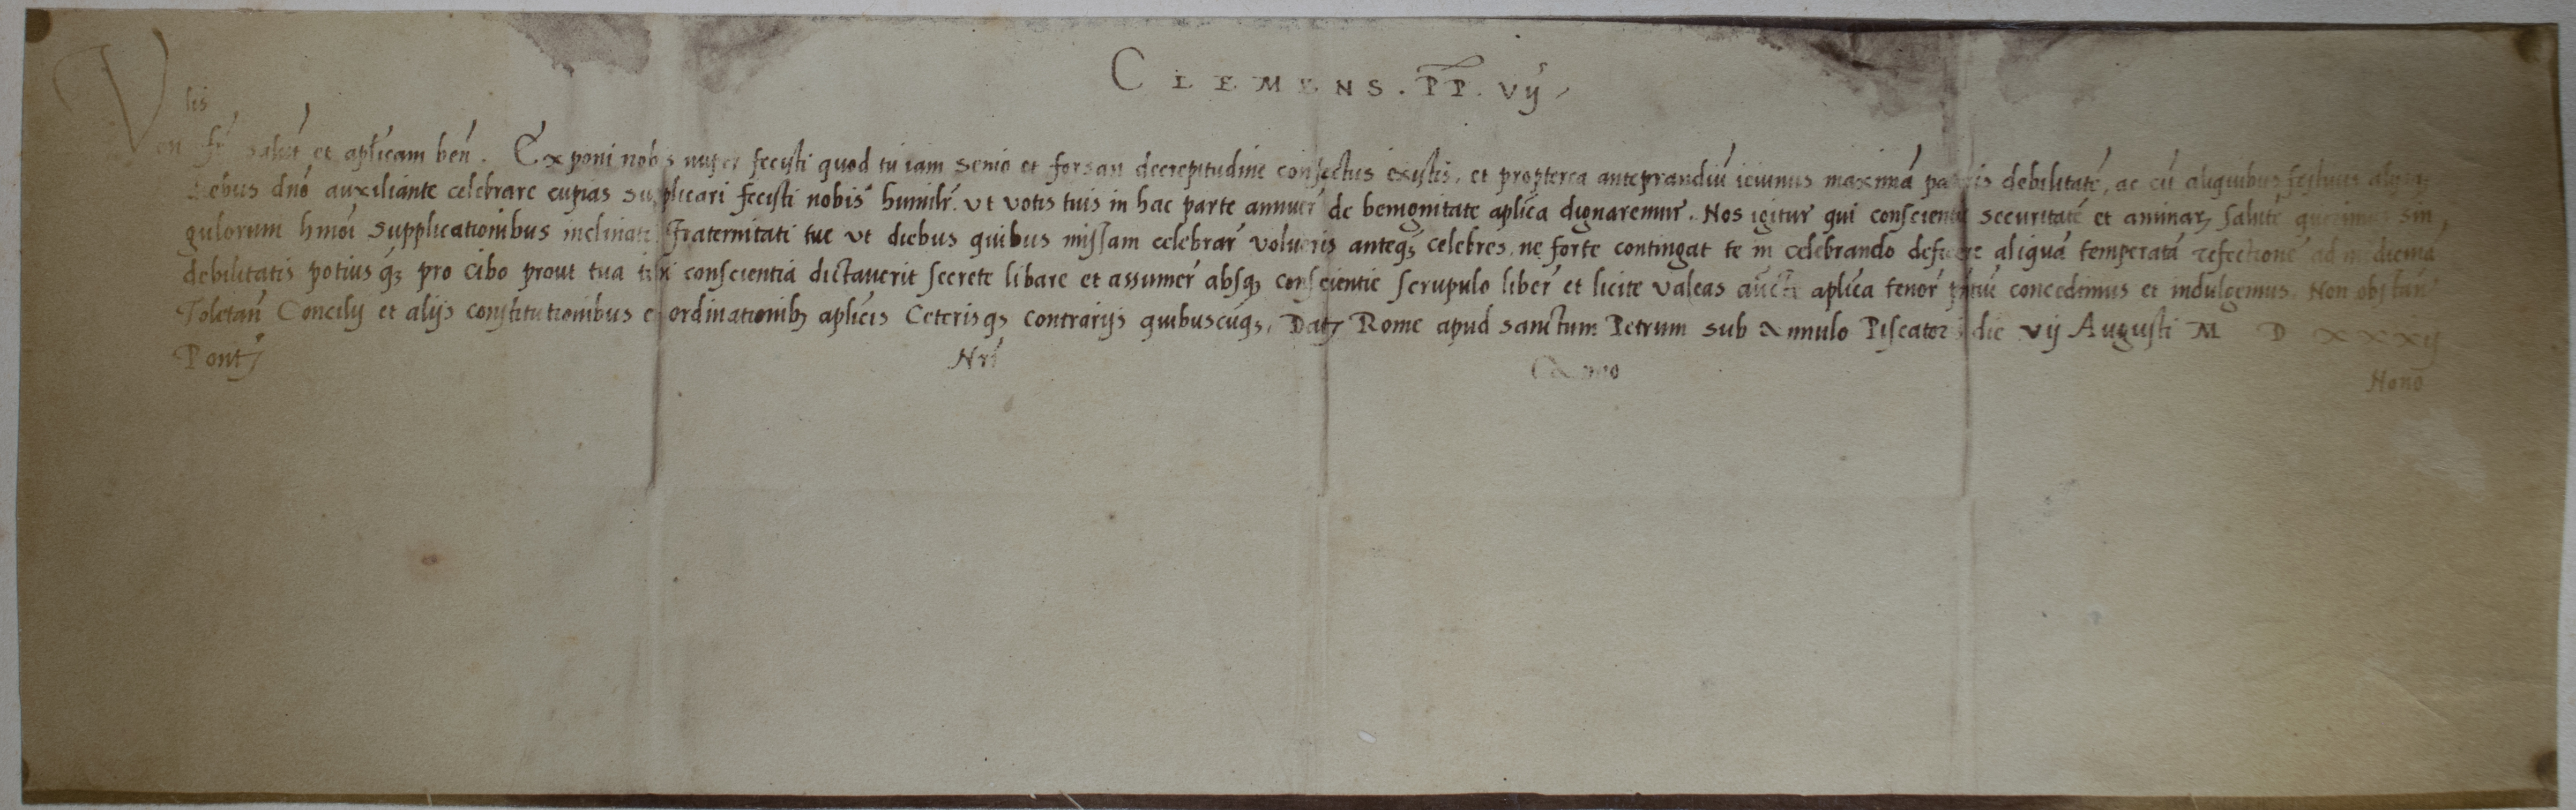 CLEMENS. PP. Vij
lis
Ven fr salut et aplicam ben. Exponi nobis nuper fecisti quod tu iam senio et forsan decrepitudine confectus existis, et propterea anteprandiu ieiunus maximá pateris debilitaté, ac cú aliquibus festiuis
diebus dnó auxiliante celebrare cupias supplicari fecisti nobis humilr. ut votis tuis in hac parte annuer de benignitate aplica dignaremur. Nos igitur qui conscientie securitaté et animarȝ saluté querimus sin
gulorum hmoi supplicationibus inclinati Fraternitati tue ut diebus quibus missam celebrar volueris anteqȝ celebres, ne forte contingat te in celebrando deficere aliquá temperatá refectioné ad mediciná
debilitatis potius qȝ pro cibo prout tua tibi conscientia dictaverit secrete libare et assumer absqȝ conscientie scrupulo liber et licite valeas auctte aplica tenor pntiu concedimus et indulgemus. Non obstan
Toletan Concilij et alijs constitutionibus et ordinationibȝ aplicis Ceterisqȝ contrarijs quibuscuqȝ, Datȝ Rome apud sanctum Petrum sub Annulo Piscatoris die vij Augusti M D xxxij
Pontȝ Nri Anno Nono